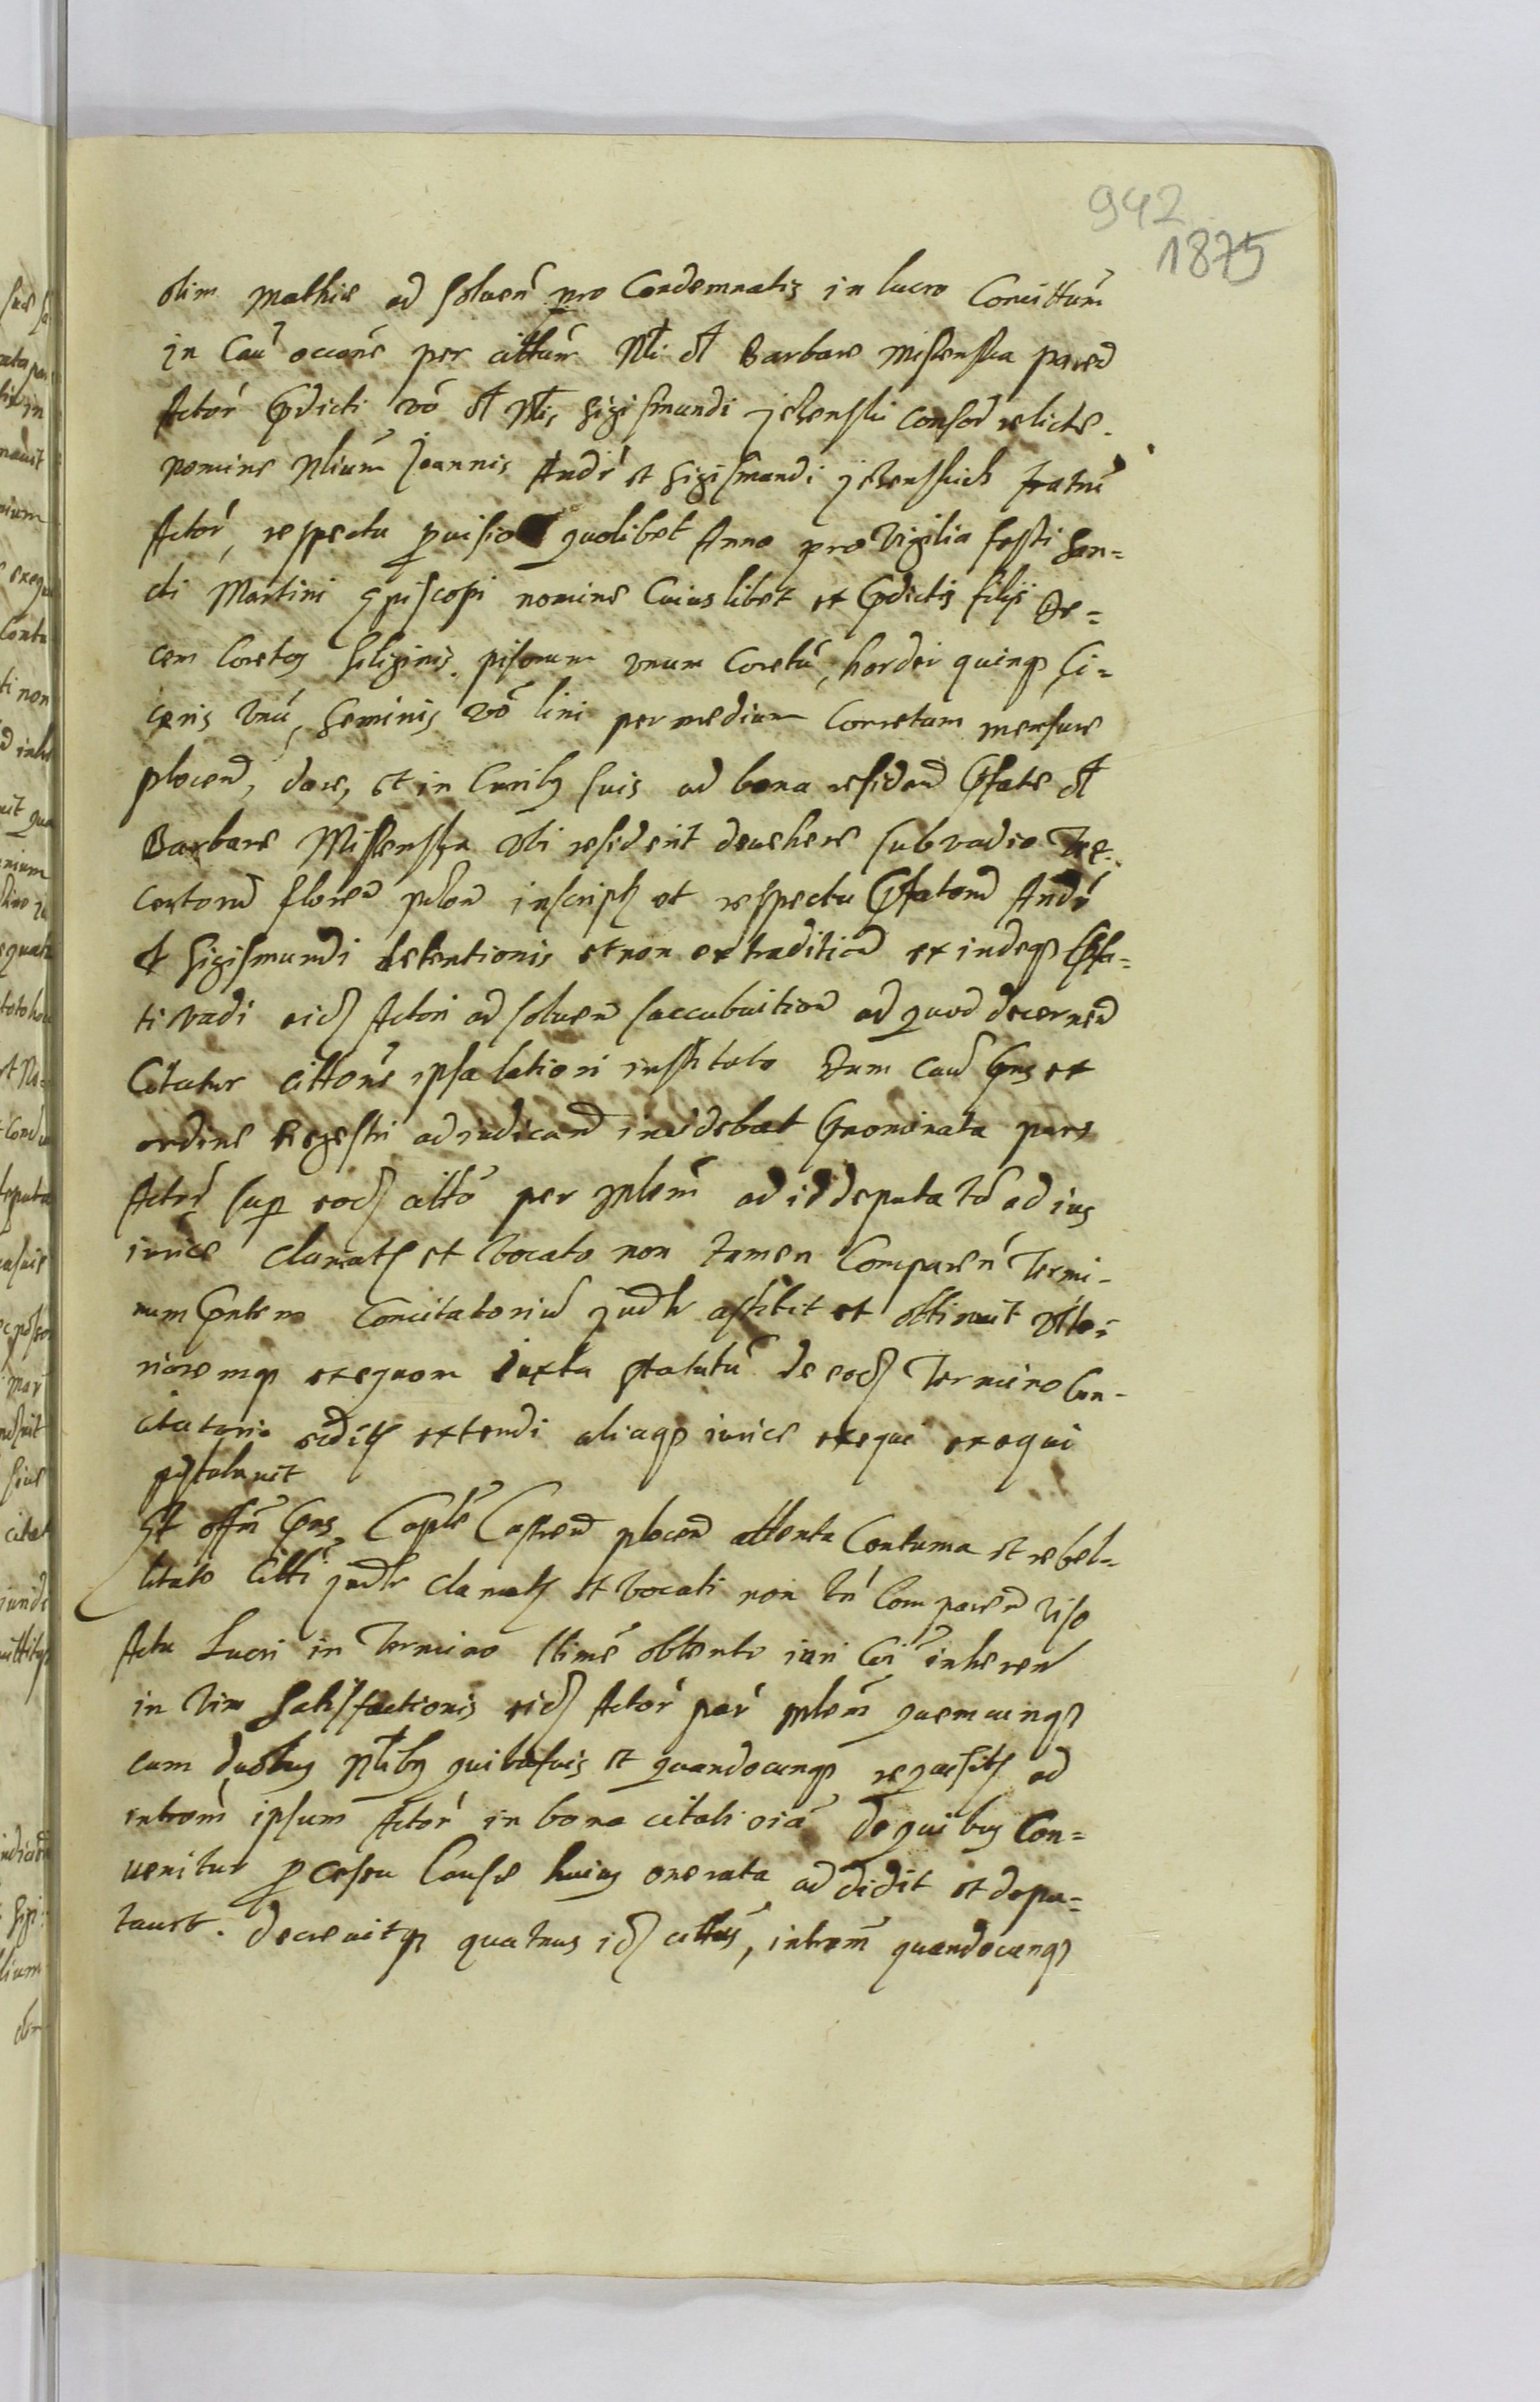 942
1875
olim Mathie ad soluen pro Condemnatis in lucro Concittum
in Cau occone per cittum Nli et Barbare Missenska paren
Actor Pdicti vo et Nli, Sigismundi jezenski consor relicte.
nomine Nlium Joannis Andr et Sigismundi jezenskich fratru
Actor, respectu quolibet Anno pro Vigilia festi San=
cti Martini Episcopi nomine Cuiuslibet ex Pdictis filijs De=
cem Coretos siliginis, pisorum vnum Coretu, hordei quinq Ci=
ceris Vnu, Seminis vo lini per medium Corretum mensure
plocen, dare, et in Curib suis ad bona residend Pfate et
Barbare Missenska Vbi residerit deuehere sub vadio Tre=
centoru floren polon inscript et respectu Pfatoru Andr
et Sigismundi detentionis et non extradition ex indeq Pfa=
ti vadi eid Actori ad soluen succubuition ad quod decernend
Citatur cittone ipsa latiori instituto Dum cau Pns ex
ordine Regestri adiudicand incidebat Pnominata pars
Actor sup eod citto per mlem ad id deputatu ad ius
iurice clamat et vocato non tamen Comparen Termi-
num Pntem Concitatoriu judlr astitit et obtinuit Vlte=
rioremq exequom iuxta statutu de eod Termino Con-
citatorio edit extendi aliaq iurice exequi exequi
postulauit
Et offm Pns Captle Castren plocen attenta Contuma et rebel=
litate Citti judlr clamat et vocati non tn Comparen viso
Actu Lucri in Termino llime obtento iuri Coi inheren
in vim Satisfactionis eid Actor par mlem quemcunq
cum duobus Nlibg quibusuis et quandocunq requisit ad
introm ipsum Actor in bona citati oia de quibus Con=
uenitur p cessu Cause huius onerata addidit et depu=
tauit. Decreuitq quatenus id cittus, introm quandocunq